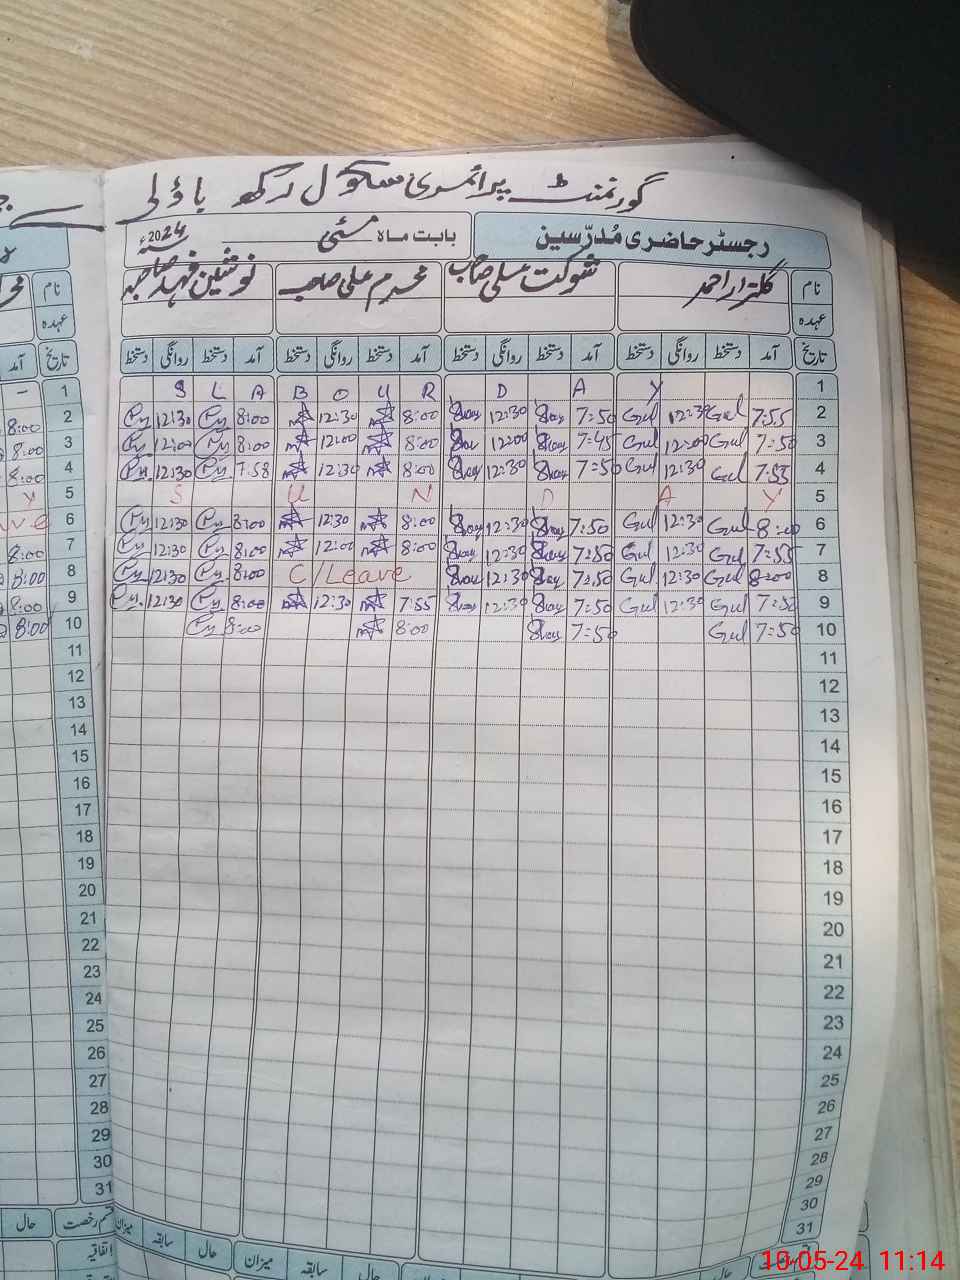 گورنمنٹ پرائمری سکول رکھ باؤلی
رجسٹر حاضری مُدرّسین
بابت ماہ مئی 2024ء
نام گلزار احمد شوکت علی صاحب محرم علی صاحب نوشین فہد صاحبہ
عہدہ
تاریخ آمد دستخط روانگی دستخط آمد دستخط روانگی دستخط آمد دستخط روانگی دستخط آمد دستخط روانگی دستخط
S L A B O U R D A Y 1
12:30 8:00 12:30 8:00 12:30 7:50 Gul 12:30 Gul 7:55 2
12:00 8:00 12:00 8:00 12:00 7:45 Gul 12:00 Gul 7:50 3
12:30 7:58 12:30 8:00 12:30 7:50 Gul 12:30 Gul 7:55 4
S U N D A Y 5
12:30 8:00 12:30 8:00 12:30 7:50 Gul 12:30 Gul 8:00 6
12:30 8:00 12:00 8:00 12:30 7:50 Gul 12:30 Gul 7:55 7
12:30 8:00 C/Leave 12:30 7:50 Gul 12:30 Gul 8:00 8
12:30 8:00 12:30 7:55 12:30 7:50 Gul 12:30 Gul 7:50 9
8:00 8:00 7:50 Gul 7:50 10
11
12
13
14
15
16
17
18
19
20
21
22
23
24
25
26
27
28
29
30
31
میزان سابقہ حال میزان سابقہ حال
نام
عہدہ
تاریخ آمد
1
8:00 2
8:00 3
8:00 4
Y 5
6
8:00 7
8:00 8
8:00 9
8:00 10
11
12
13
14
15
16
17
18
19
20
21
22
23
24
25
26
27
28
29
30
31
قسم رخصت حال
اتفاقیہ
10-05-24 11:14